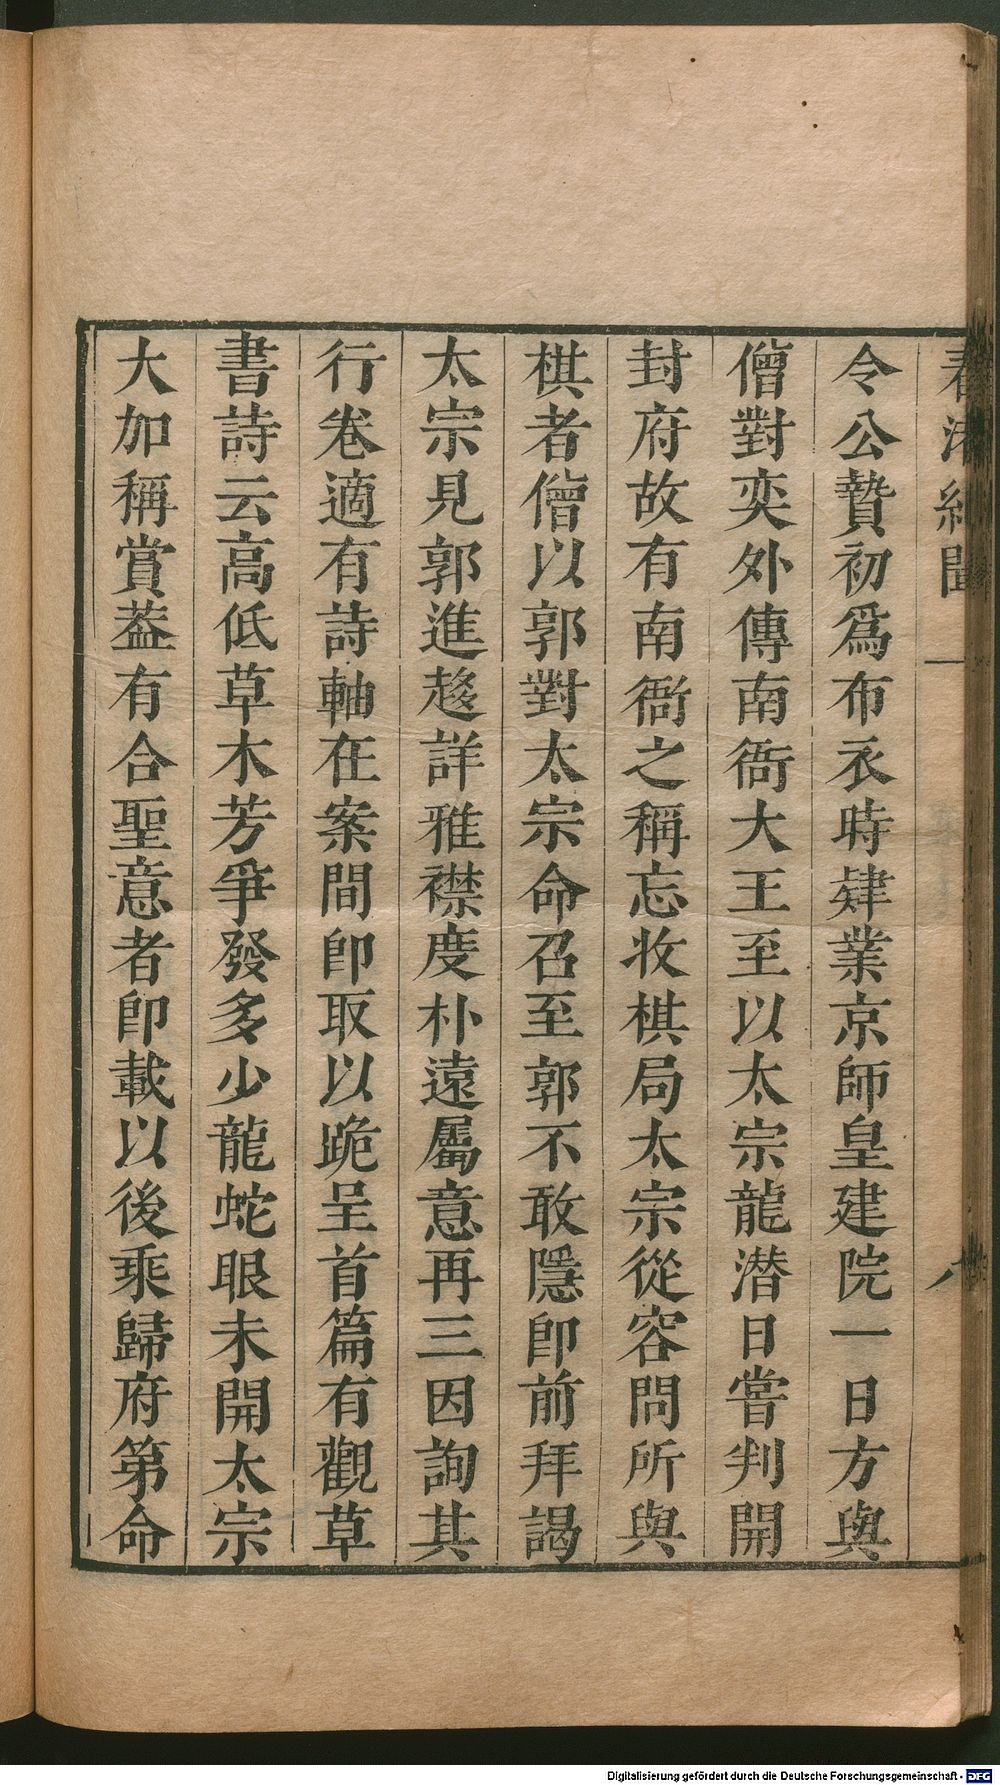 春渚紀聞 一 八
令公贄初爲布衣時肄業京師皇建院一日方與
僧對奕外傳南衙大王至以太宗龍潛日嘗判開
封府故有南衙之稱忘收棋局太宗從容問所與
棋者僧以郭對太宗命召至郭不敢隱卽前拜謁
太宗見郭進趍詳雅襟度朴遠屬意再三因詢其
行卷適有詩軸在案間卽取以跪呈首篇有觀草
書詩云高低草木芳爭發多少龍蛇眼未開太宗
大加稱賞葢有合聖意者卽載以後乘歸府第命
Digitalisierung gefördert durch die Deutsche Forschungsgemeinschaft - DFG